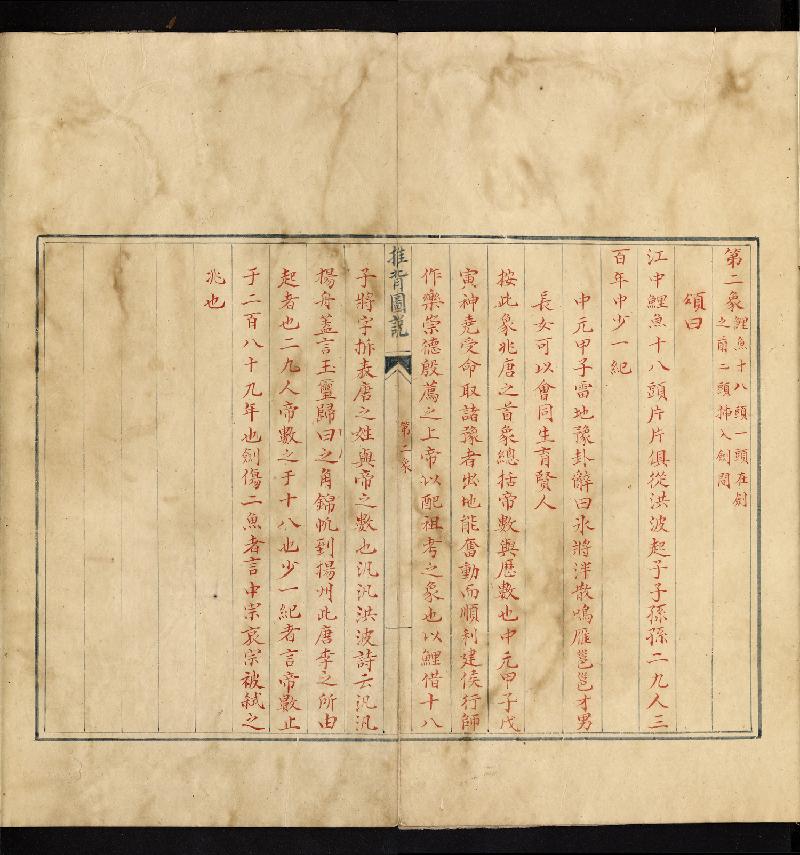 第二象鯉魚十八頭一頭在劍
之南二頭揷入劍間
頌曰
江中鯉魚十八頭片片俱從洪波起子子孫孫二九人三
百年中少一紀
中元甲子雷地豫卦辭曰氷將泮散鳴雁邕邕才男
長女可以會同生育賢人
按此象兆唐之首象總括帝數與歷數也中元甲子戊
寅神堯受命取諸豫者出地能奮動而順利建侯行師
作樂崇德殷薦之上帝以配祖考之象也以鯉借十八
推背圖說
第二象
子將字拆表唐之姓與帝之數也汎汎洪波詩云汎汎
揚舟蓋言玉璽歸曰之角錦帆到揚州此唐李之所由
起者也二九人帝數之于十八也少一紀者言帝數止
于二百八十九年也劍傷二魚者言中宗哀宗被弒之
兆也